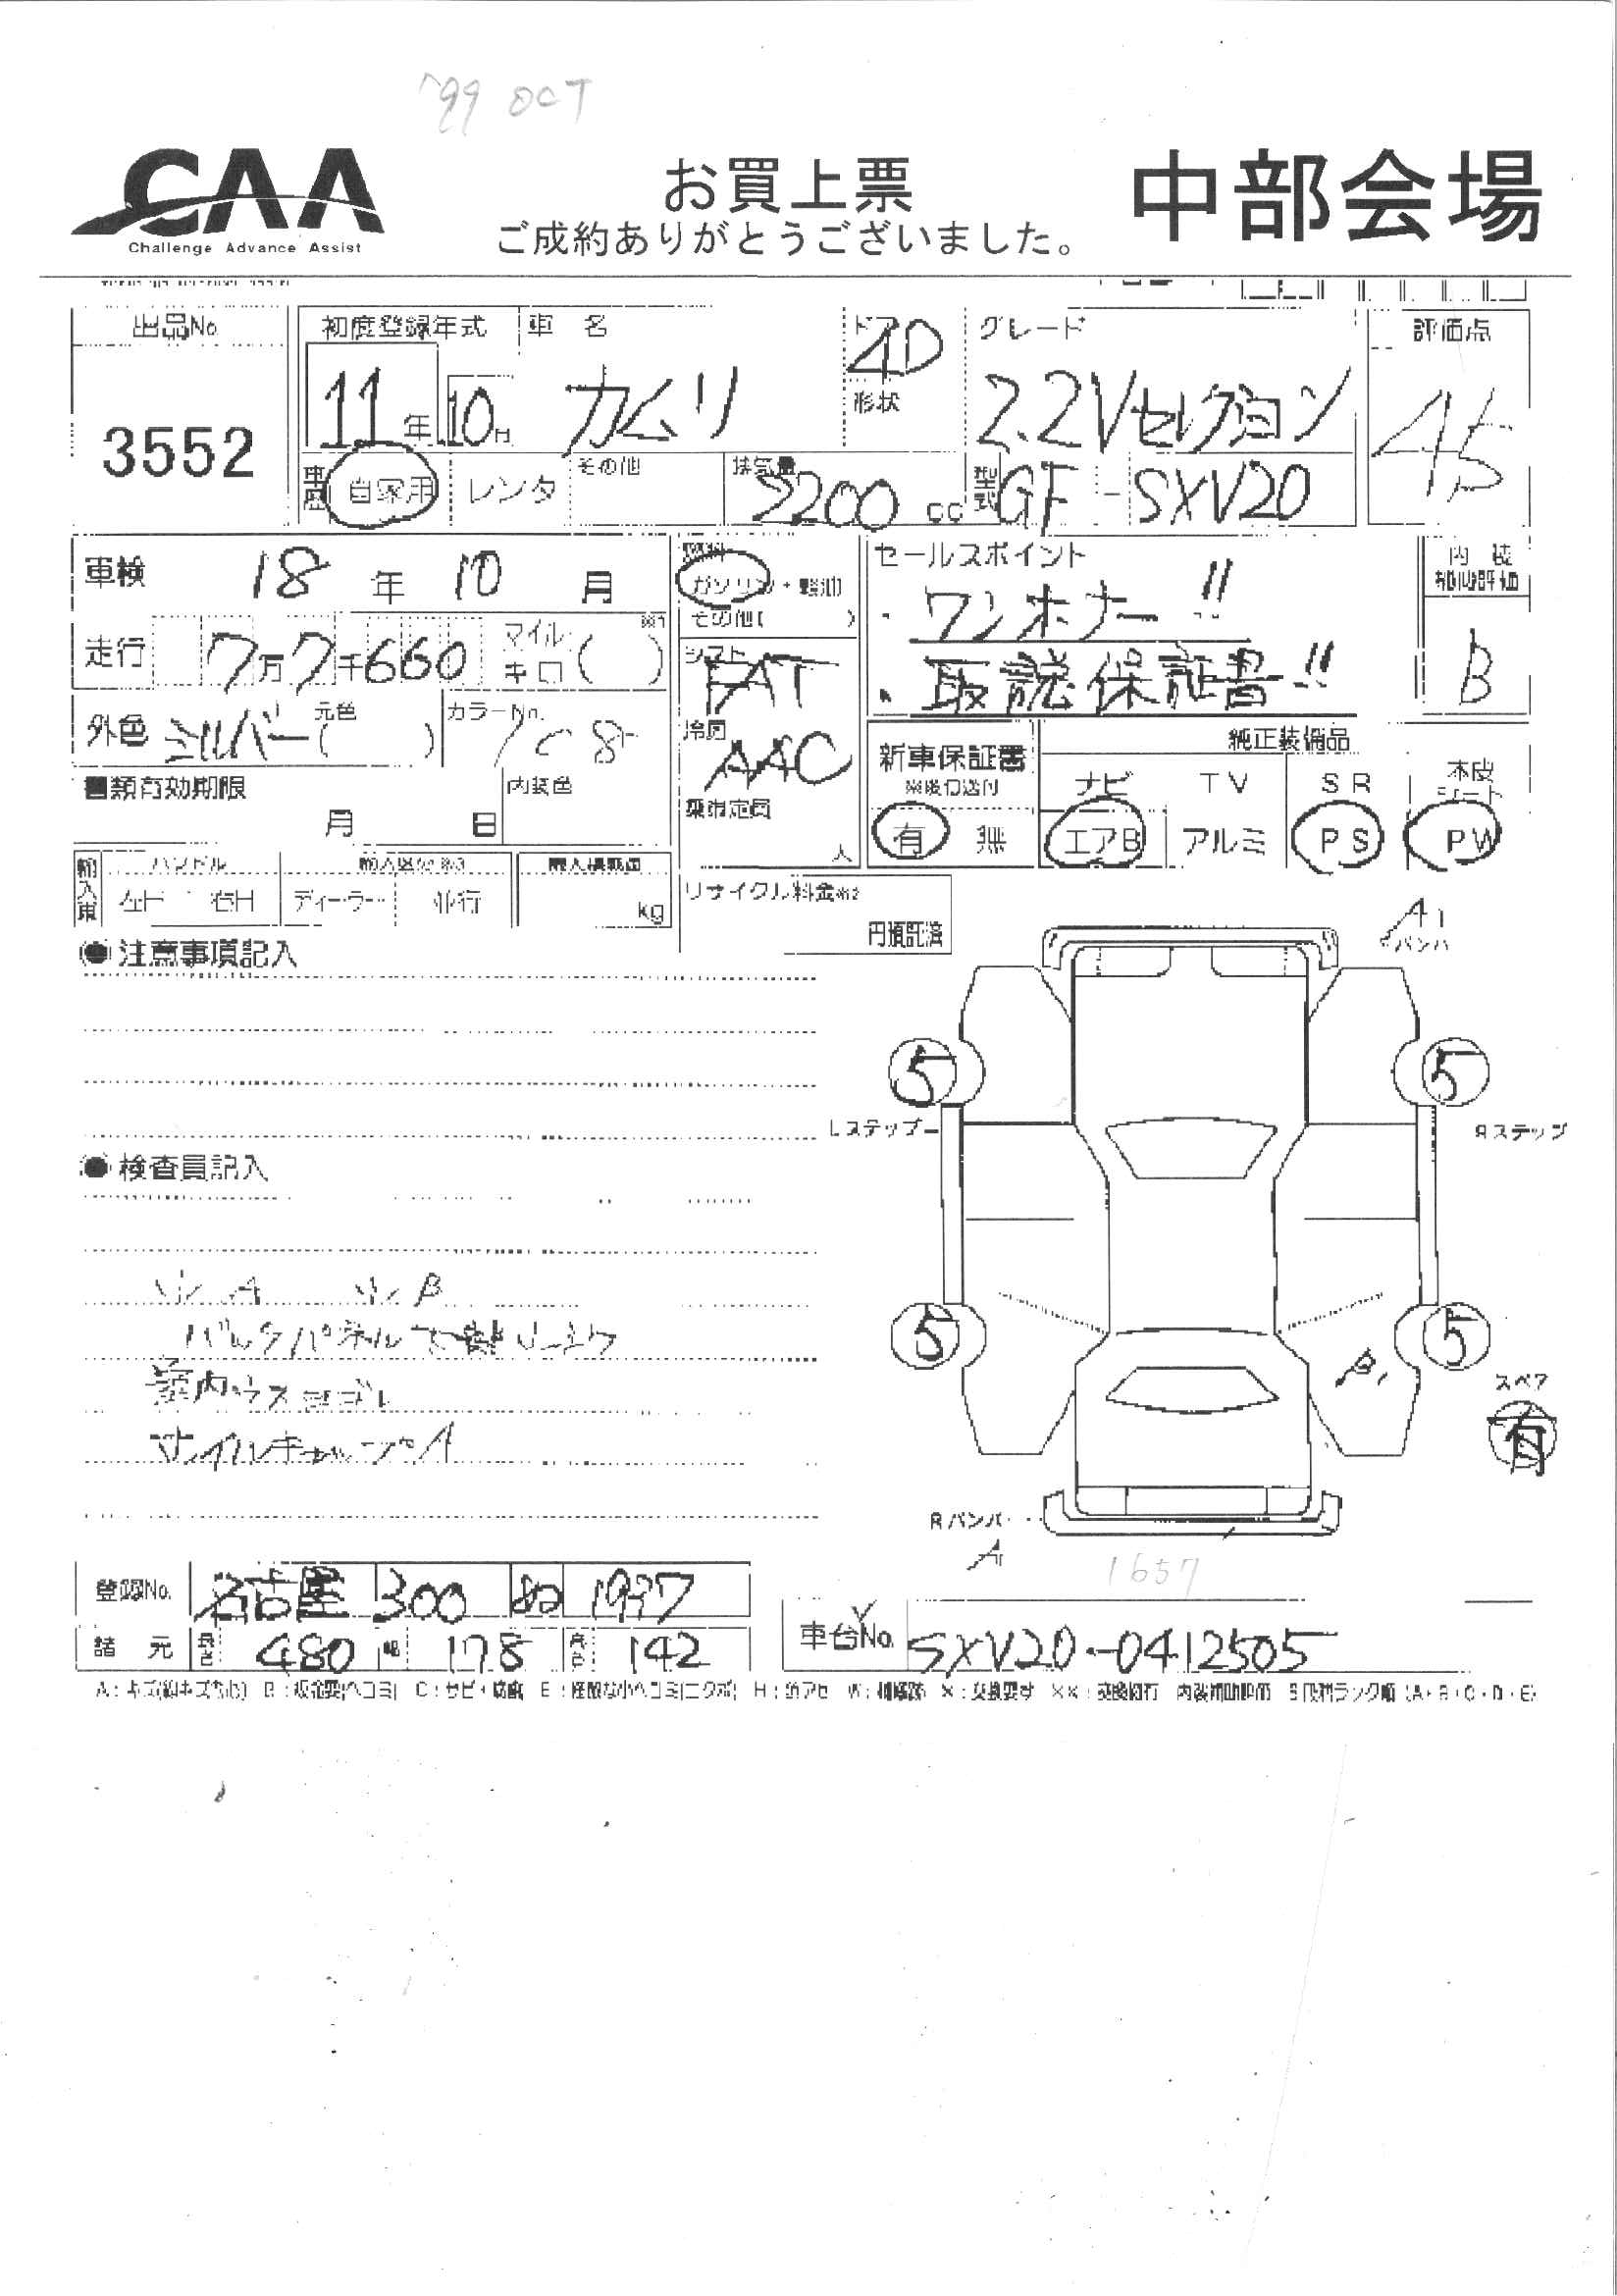 '99 OCT
CAA
Challenge Advance Assist
お買上票
ご成約ありがとうございました。
中部会場
出品No. 初度登録年式 車名 ドア 4D グレード 評価点
3552 11年 10月 カムリ 形状 2.2Vセレクション 4.5
車歴 自家用 レンタ その他 排気量 2200 cc 型式 GF - SXV20
車検 18年 10月 燃料 ガソリン・軽油 その他( ) セールスポイント 内装補助評価
・ワンオナー!!
走行 7万7千660 マイル キロ ( ) ※1 シフト FAT ・取説保証書!! B
外色 シルバー 元色( ) カラーNo. 1C8 冷房 AAC 新車保証書 ※後日送付 純正装備品
ナビ TV SR 本皮シート
書類有効期限 月 日 内装色 乗車定員 人 有 無 エアB アルミ PS PW
輸入車 ハンドル 左H 右H 輸入区分※3 ディーラー 並行 輸入積載量 kg リサイクル料金※2 円預託済
●注意事項記入
A1
Fバンパ
5 5
Lステップ Rステップ
●検査員記入
A B
バックパネル
室内ウスヨゴレ
ホイルキャップA
5 5
B1
スペア
有
Rバンパ
A
1657
登録No. 名古屋 300 1937
諸元 長さ 480 幅 178 高さ 142 車台No. SXV20-0412505
A:キズ(線キズ含む) B:板金要(ヘコミ) C:サビ・腐食 E:軽微な小ヘコミ(エクボ) H:色アセ W:補修跡 X:交換要す XX:交換済 内装補助評価 5段階ランク順(A・B・C・D・E)